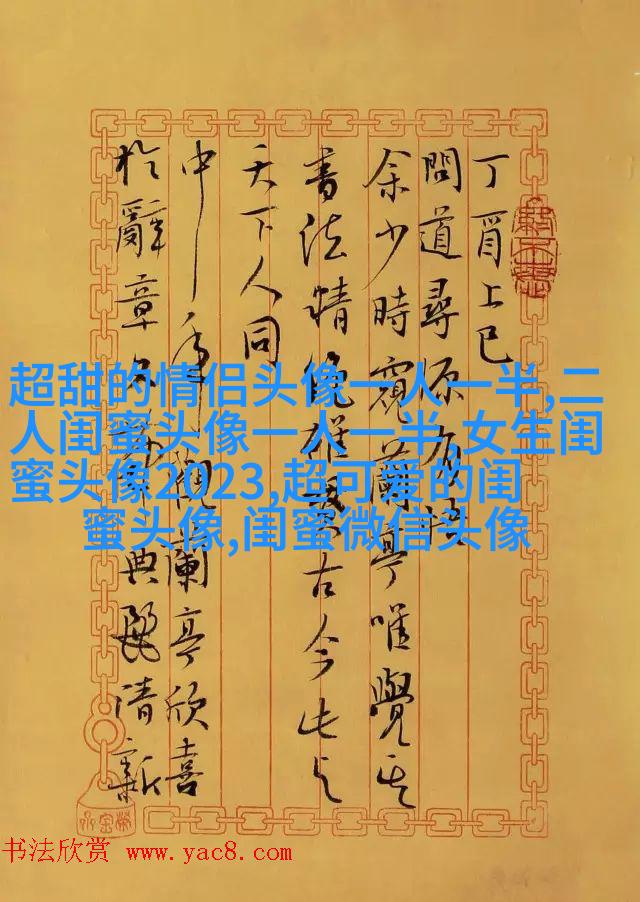 丁酉上巳
問道尋源有語
余少時窺蘭亭唯覺其
書法精絶雄冠古今此与
天下人同
中年觀蘭亭欣喜
於辭章名典麗清新
超甜的情侣头像一人一半,二
人闺蜜头像一人一半,女生闺
蜜头像2023,超可爱的闺
蜜头像,闺蜜微信头像
书法欣赏 www.yac8.com